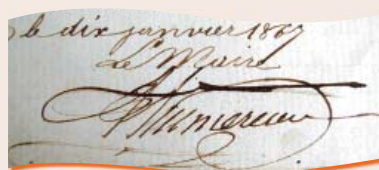 le dix janvier 1867
Le Maire